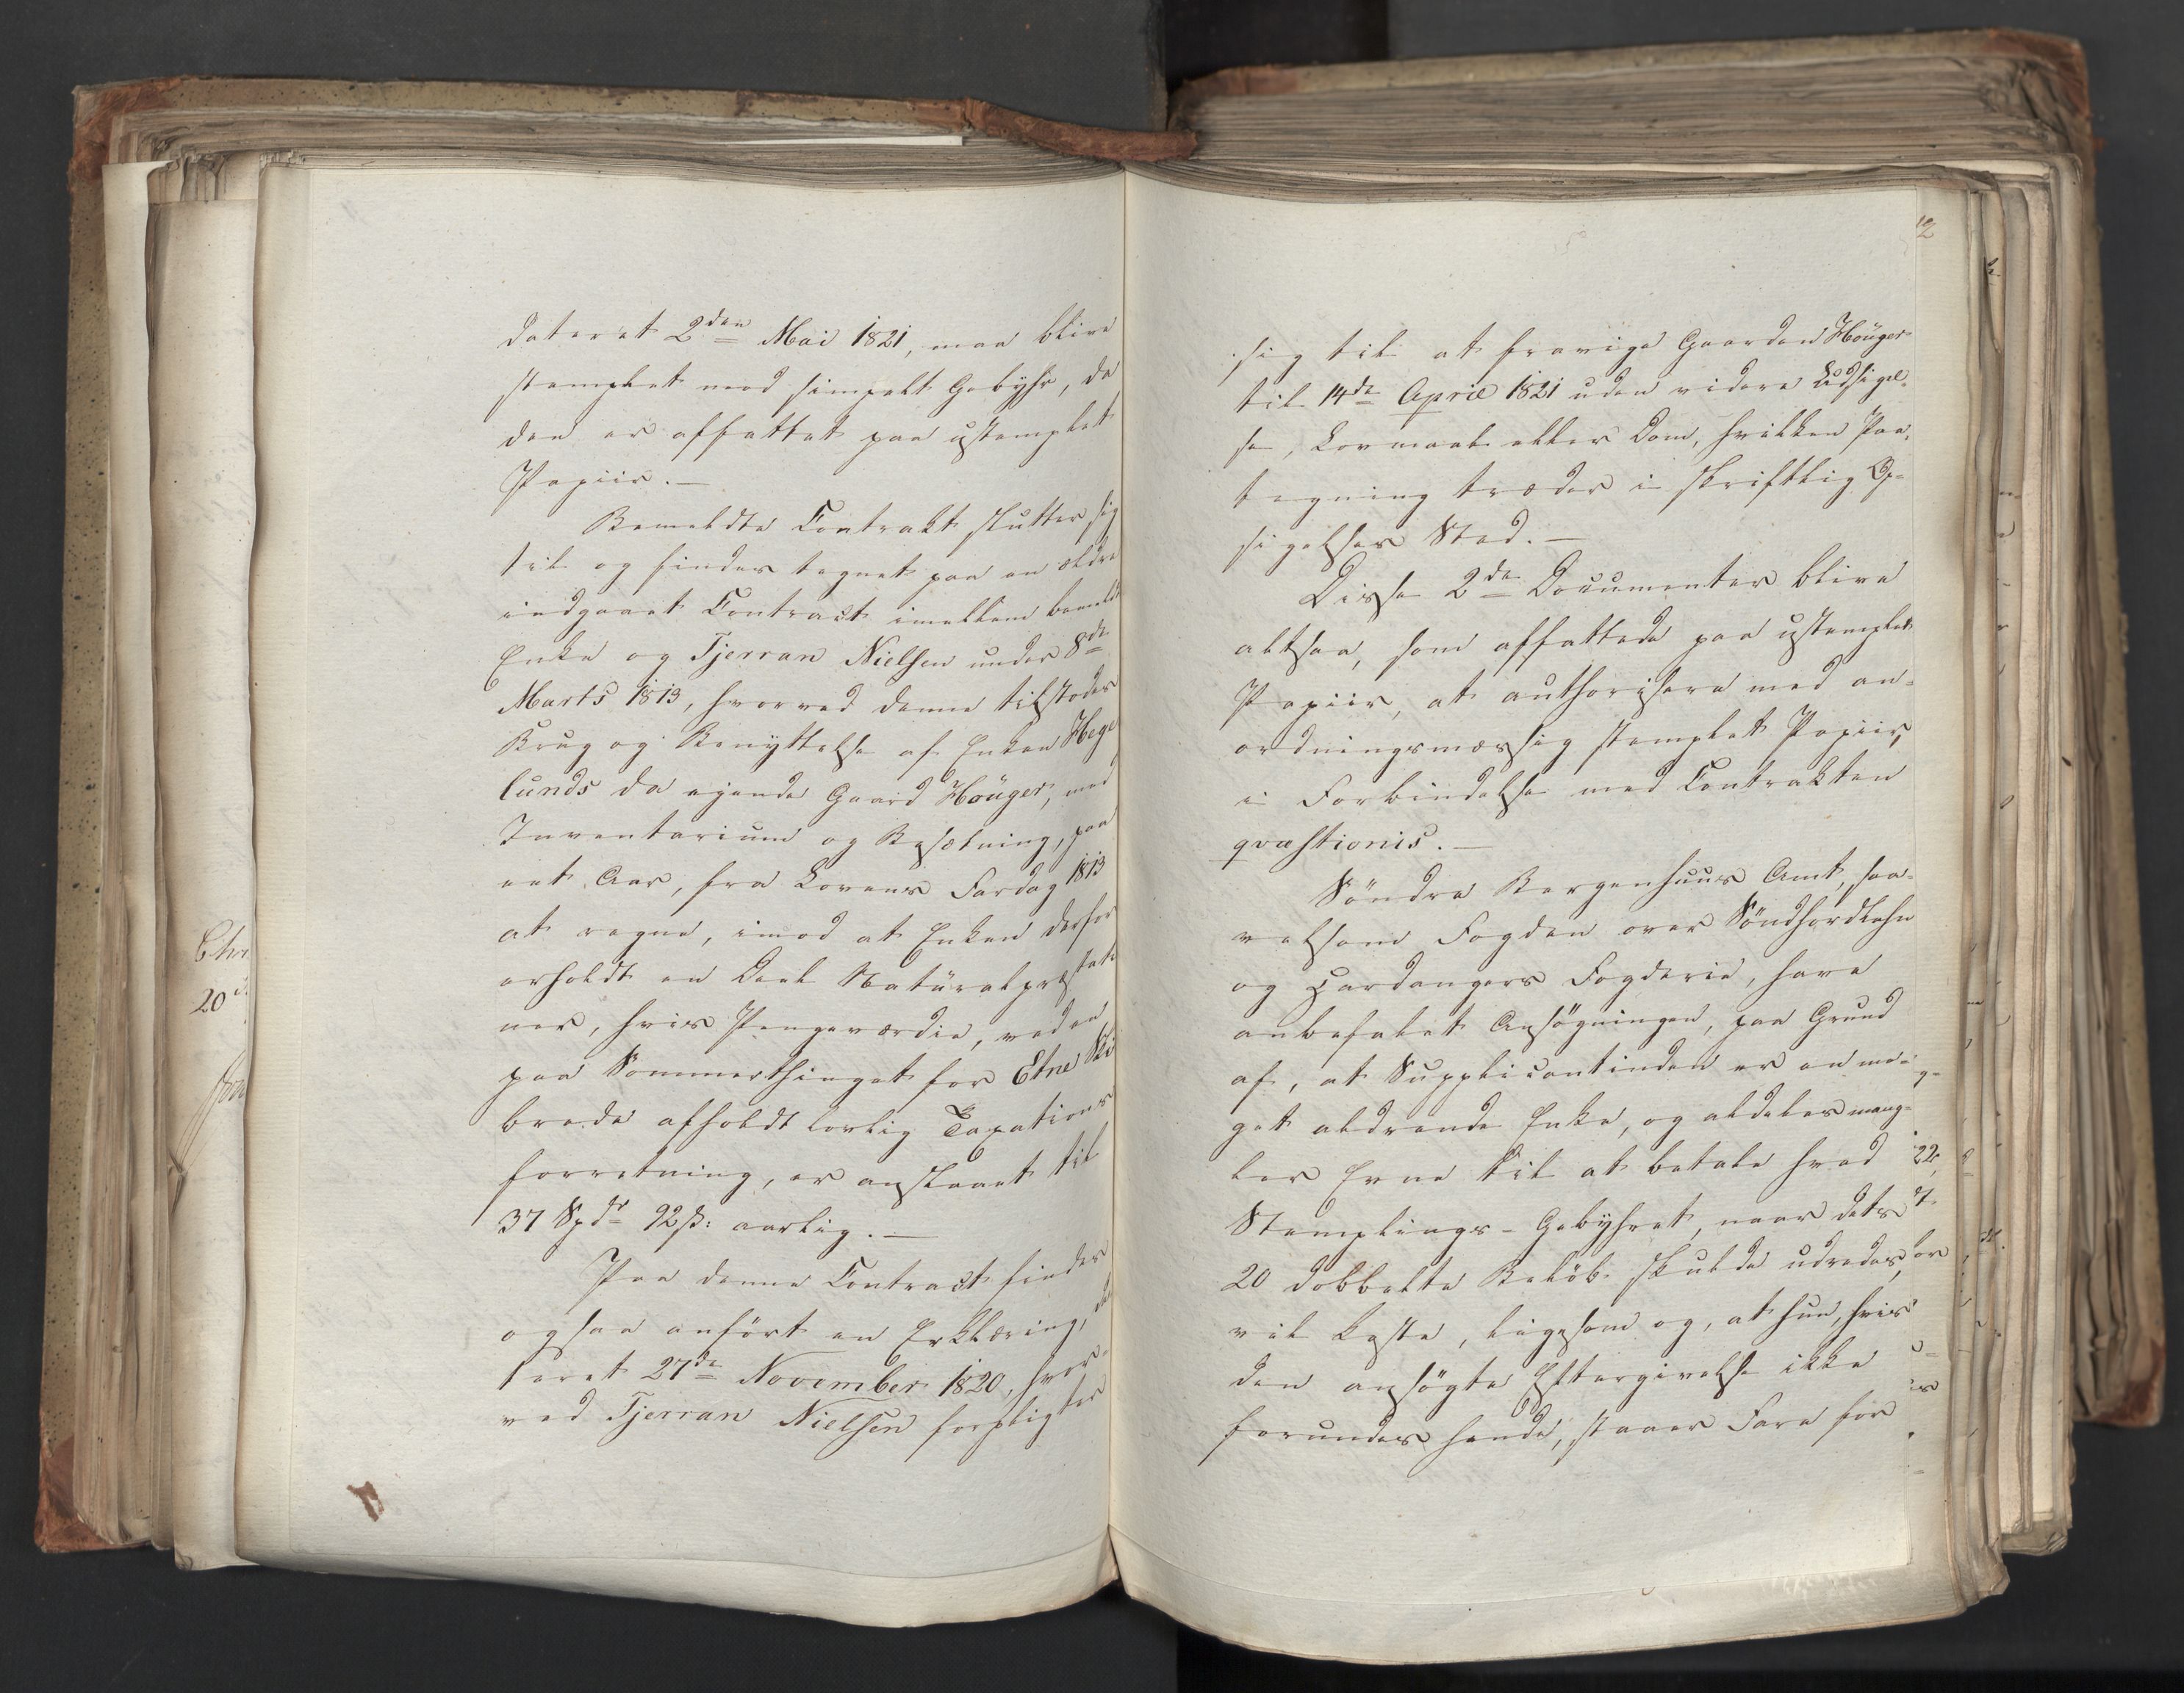 dateret 2den Mai 1821, maa blive
stemplet med simpelt Gebyhr, da
den er affattet paa ustemplet
Papiir.—
Bemeldte Contrakt slutter sig
til og findes tegnet paa en ældre
indgaaet Contract imellem bemeldte
Enke og Tjerran Nielsen under 8de
Marts 1813, hvorved denne tilstodes
Brug og Benyttelse af Enken Hege
lunds da eiende Gaard Höuger, med
Inventarium og Besætning, paa
eet Aar, fra Lovens Fardag 1813
at regne, imod at Enken derfor
erholdt en Deel Naturalprestatio
ner, hvis Pengeværdie, ved en
paa Sommerthinget for Etne Ski
brede afholdt lovlig Taxations
forretning, er anslaaet til
37 Spdr 92 ß: aarlig.—
Paa denne Contract findes
ogsaa anført en Erklæring, da
teret 27de November 1820, hvor-
ved Tjerran Nielsen forpligter
sig til at fravige Gaarden Höuger
til 14de April 1821 uden videre Udsigel-
se, Lovmaal eller Dom, hvilken Paa-
tegning træder i skriftlig Op-
sigelses Sted.—
Disse 2de Documenter blive
altsaa, som affattede paa ustemplet
Papiir, at authorisere med an-
ordningsmæssig stemplet Papiir,
i Forbindelse med Contrakten
qvæstionis.—
Söndre Bergenhuus Amt, saa-
velsom Fogden over Söndhordlehn
og Hardangers Fogderie, have
anbefalet Ansøgningen, paa Grund
af, at Supplicantinden er en me-
get aldrende Enke, og aldeles mang-
ler Evne til at betale hvad
Stemplings-Gebyhret, naar dets
20 dobbelte Beløb skulde udredes,
vil koste, ligesom og, at hun, hvis
den ansøgte Eftergivelse ikke
forundes hende, staaer Fare for